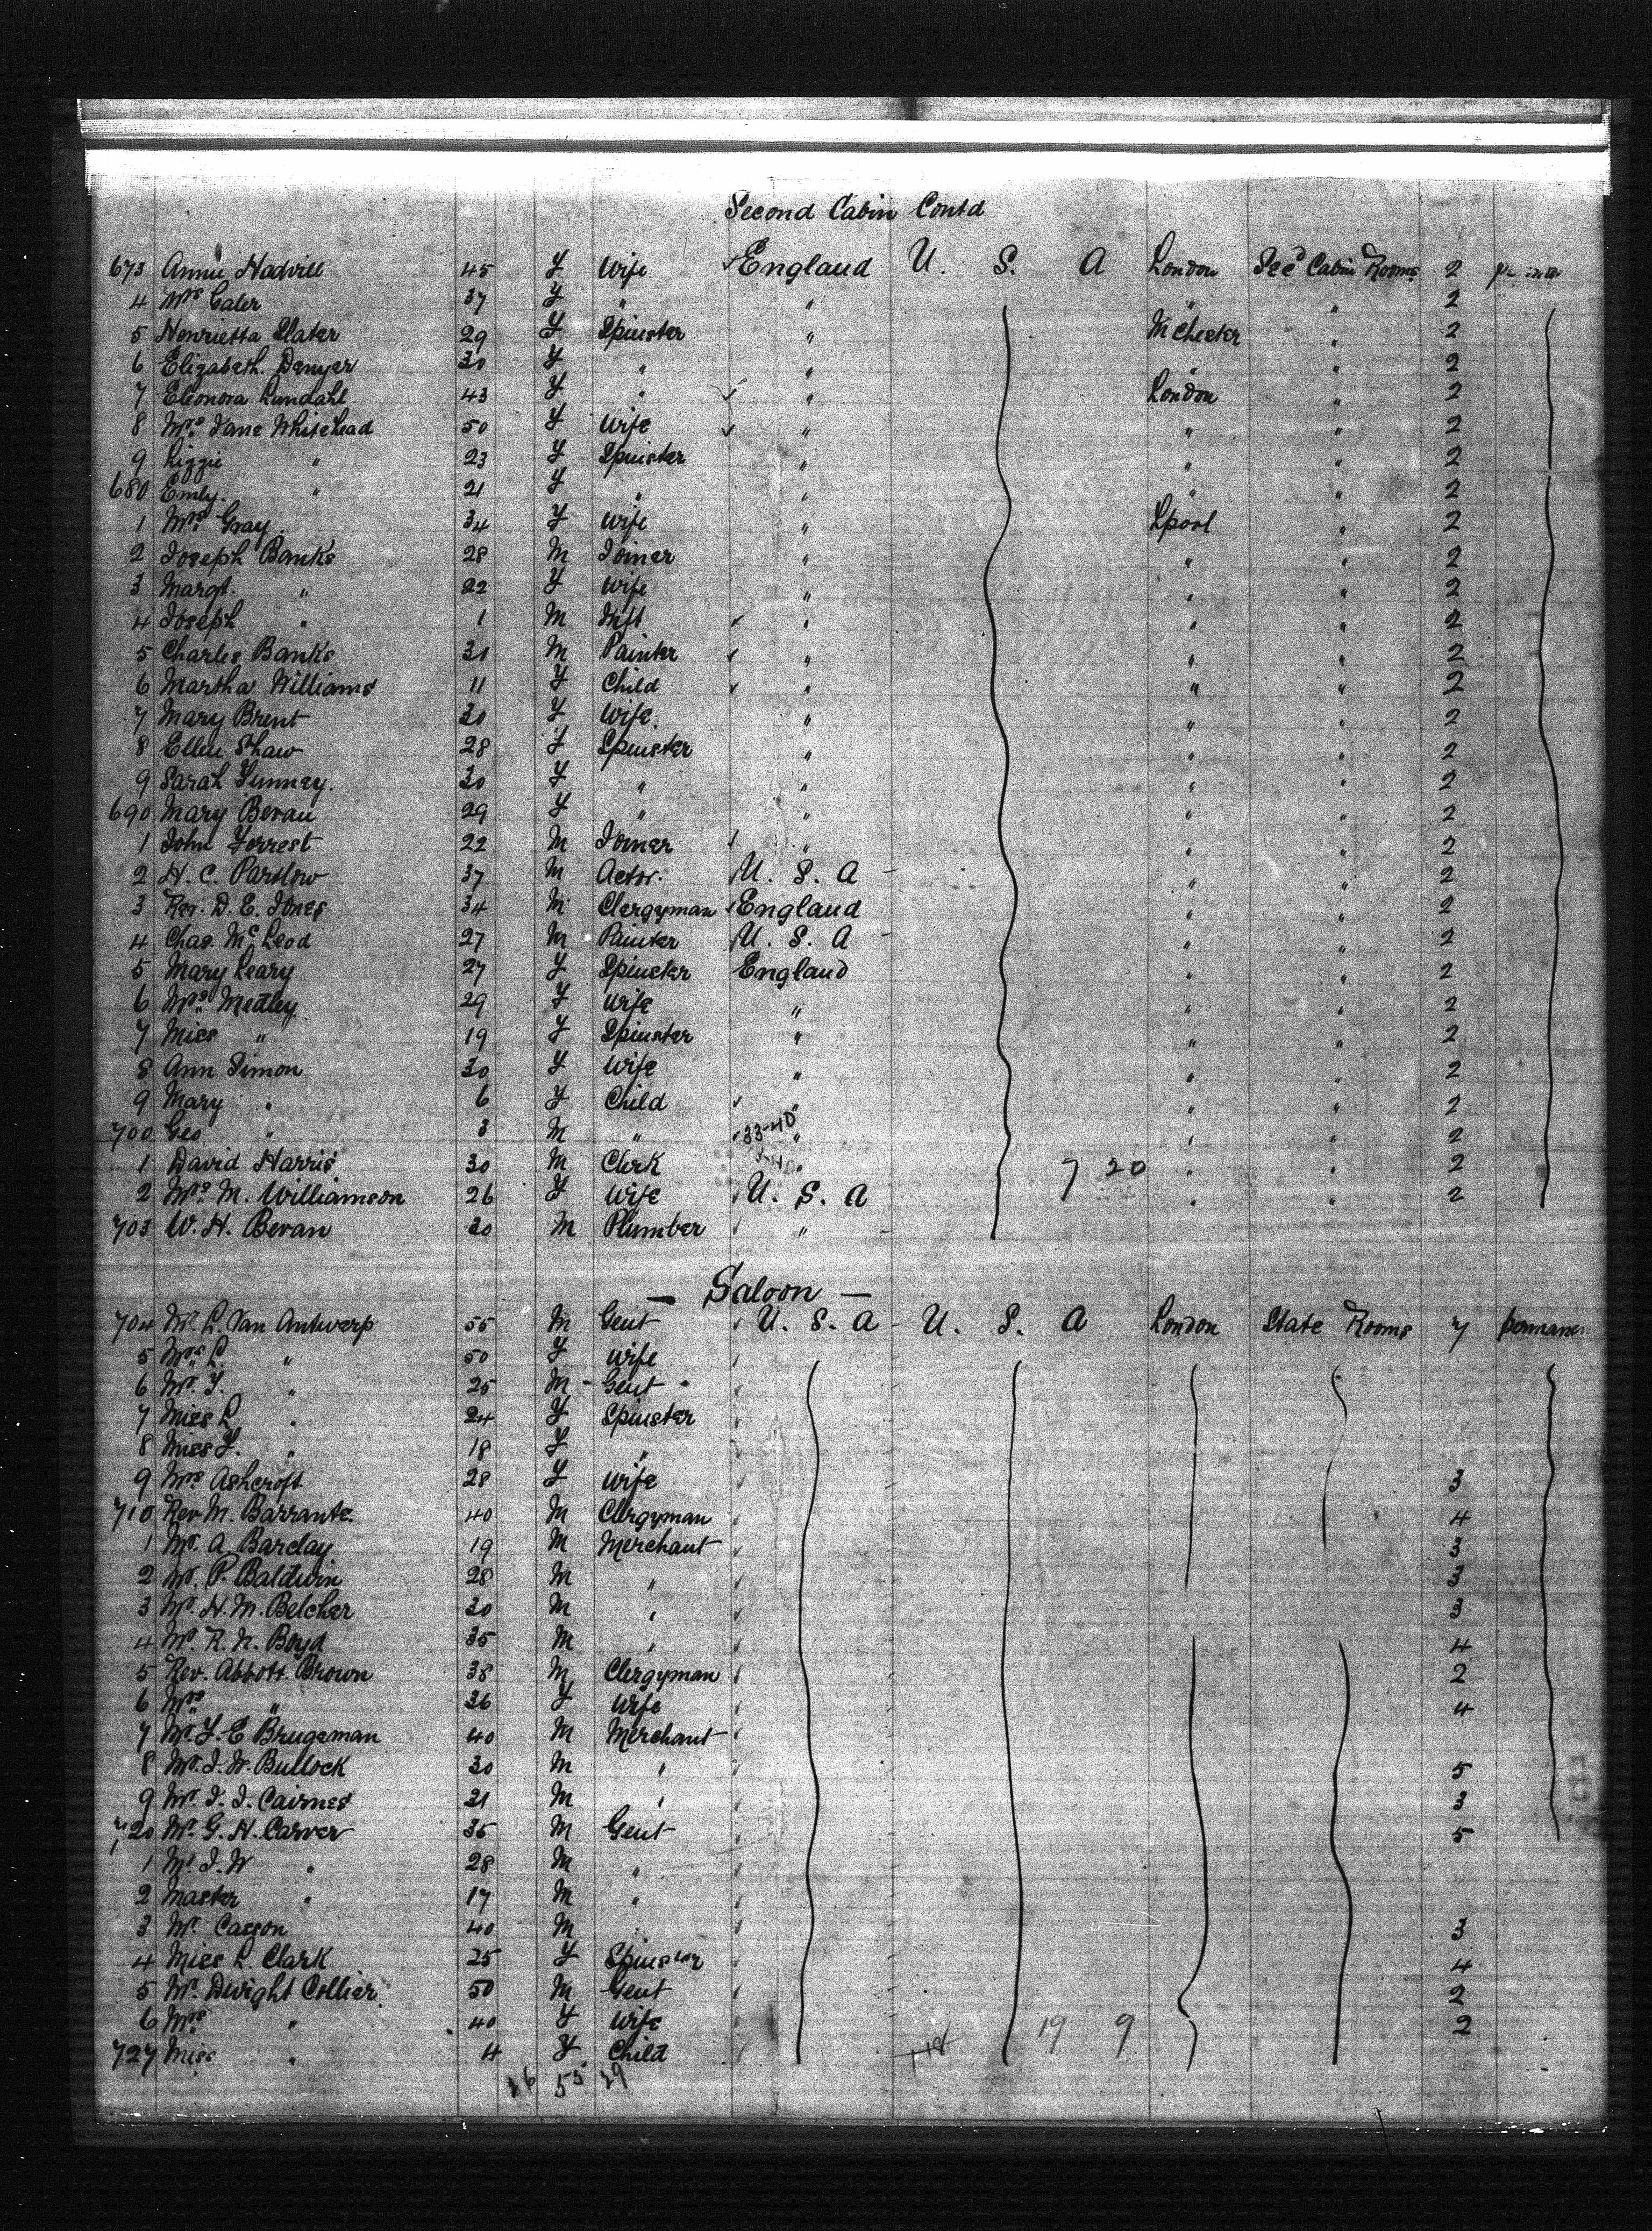 Second Cabin Contd
673 Annie Hadvill 45 F Wife England U. S. A London Sec Cabin Rooms 2
4 Mrs Caler 37 F " " " " 2
5 Henrietta Slater 29 F Spinster " McChester " 2
6 Elizabeth Denyer 30 F " " " " 2
7 Eleonora Lundahl 43 F " " London " 2
8 Mrs Jane Whitehead 50 F Wife " " " 2
9 Lizzie " 23 F Spinster " " " 2
680 Emly. " 21 F " " " " 2
1 Mrs Gray 34 F Wife " Lpool " 2
2 Joseph Banks 28 M Joiner " " " 2
3 Margt. " 22 F Wife " " " 2
4 Joseph " 1 M Inft " " " 2
5 Charles Banks 31 M Painter " " " 2
6 Martha Williams 11 F Child " " " 2
7 Mary Brent 30 F Wife " " " 2
8 Ellen Shaw 28 F Spinster " " " 2
9 Sarah Funney. 30 F " " " " 2
690 Mary Bevan 29 F " " " " 2
1 John Forrest 22 M Joiner " " " 2
2 H. C. Parslow 37 M Actor. U. S. A " " 2
3 Rev. D. E. Jones 34 M Clergyman England " " 2
4 Chas. Mc Leod 27 M Painter U. S. A " " 2
5 Mary Leary 27 F Spinster England " " 2
6 Mrs Medley 29 F Wife " " " 2
7 Miss " 19 F Spinster " " " 2
8 Ann Simon 30 F Wife " " " 2
9 Mary " 6 F Child " " " 2
700 Geo " 3 M " 33-40 " " " 2
1 David Harris 30 M Clerk " 7 20 " " 2
2 Mrs M. Williamson 26 F Wife U. S. A " " 2
703 W. H. Bevan 30 M Plumber "
— Saloon —
704 Mr. L. Van Antwerp 55 M Gent U. S. A U. S. A London State Rooms 7
5 Mrs L. " 50 F Wife
6 Mr. F. " 25 M Gent
7 Miss L " 24 F Spinster
8 Miss F. " 18 F "
9 Mrs Ashcroft 28 F Wife 3
710 Rev M. Barrante. 40 M Clergyman 4
1 Mr. A Barclay 19 M Merchant 3
2 Mr. P. Baldwin 28 M " 3
3 Mr. H. M. Belcher 30 M " 3
4 Mr. R. N. Boyd 35 M " 4
5 Rev. Abbott. Brown 38 M Clergyman 2
6 Mrs " 36 F Wife 4
7 Mr. F. E Brugeman 40 M Merchant
8 Mr. J. W. Bullock 30 M " 5
9 Mr. J. J. Cairnes 21 M " 3
720 Mr. G. H. Carver 35 M Gent 5
1 Mr J. W " 28 M "
2 Master " 17 M "
3 Mr. Casson 40 M " 3
4 Miss L. Clark 25 F Spinster 4
5 Mr. Dwight Collier 50 M Gent 2
6 Mrs " 40 F Wife 19 9 2
727 Miss " 4 F Child